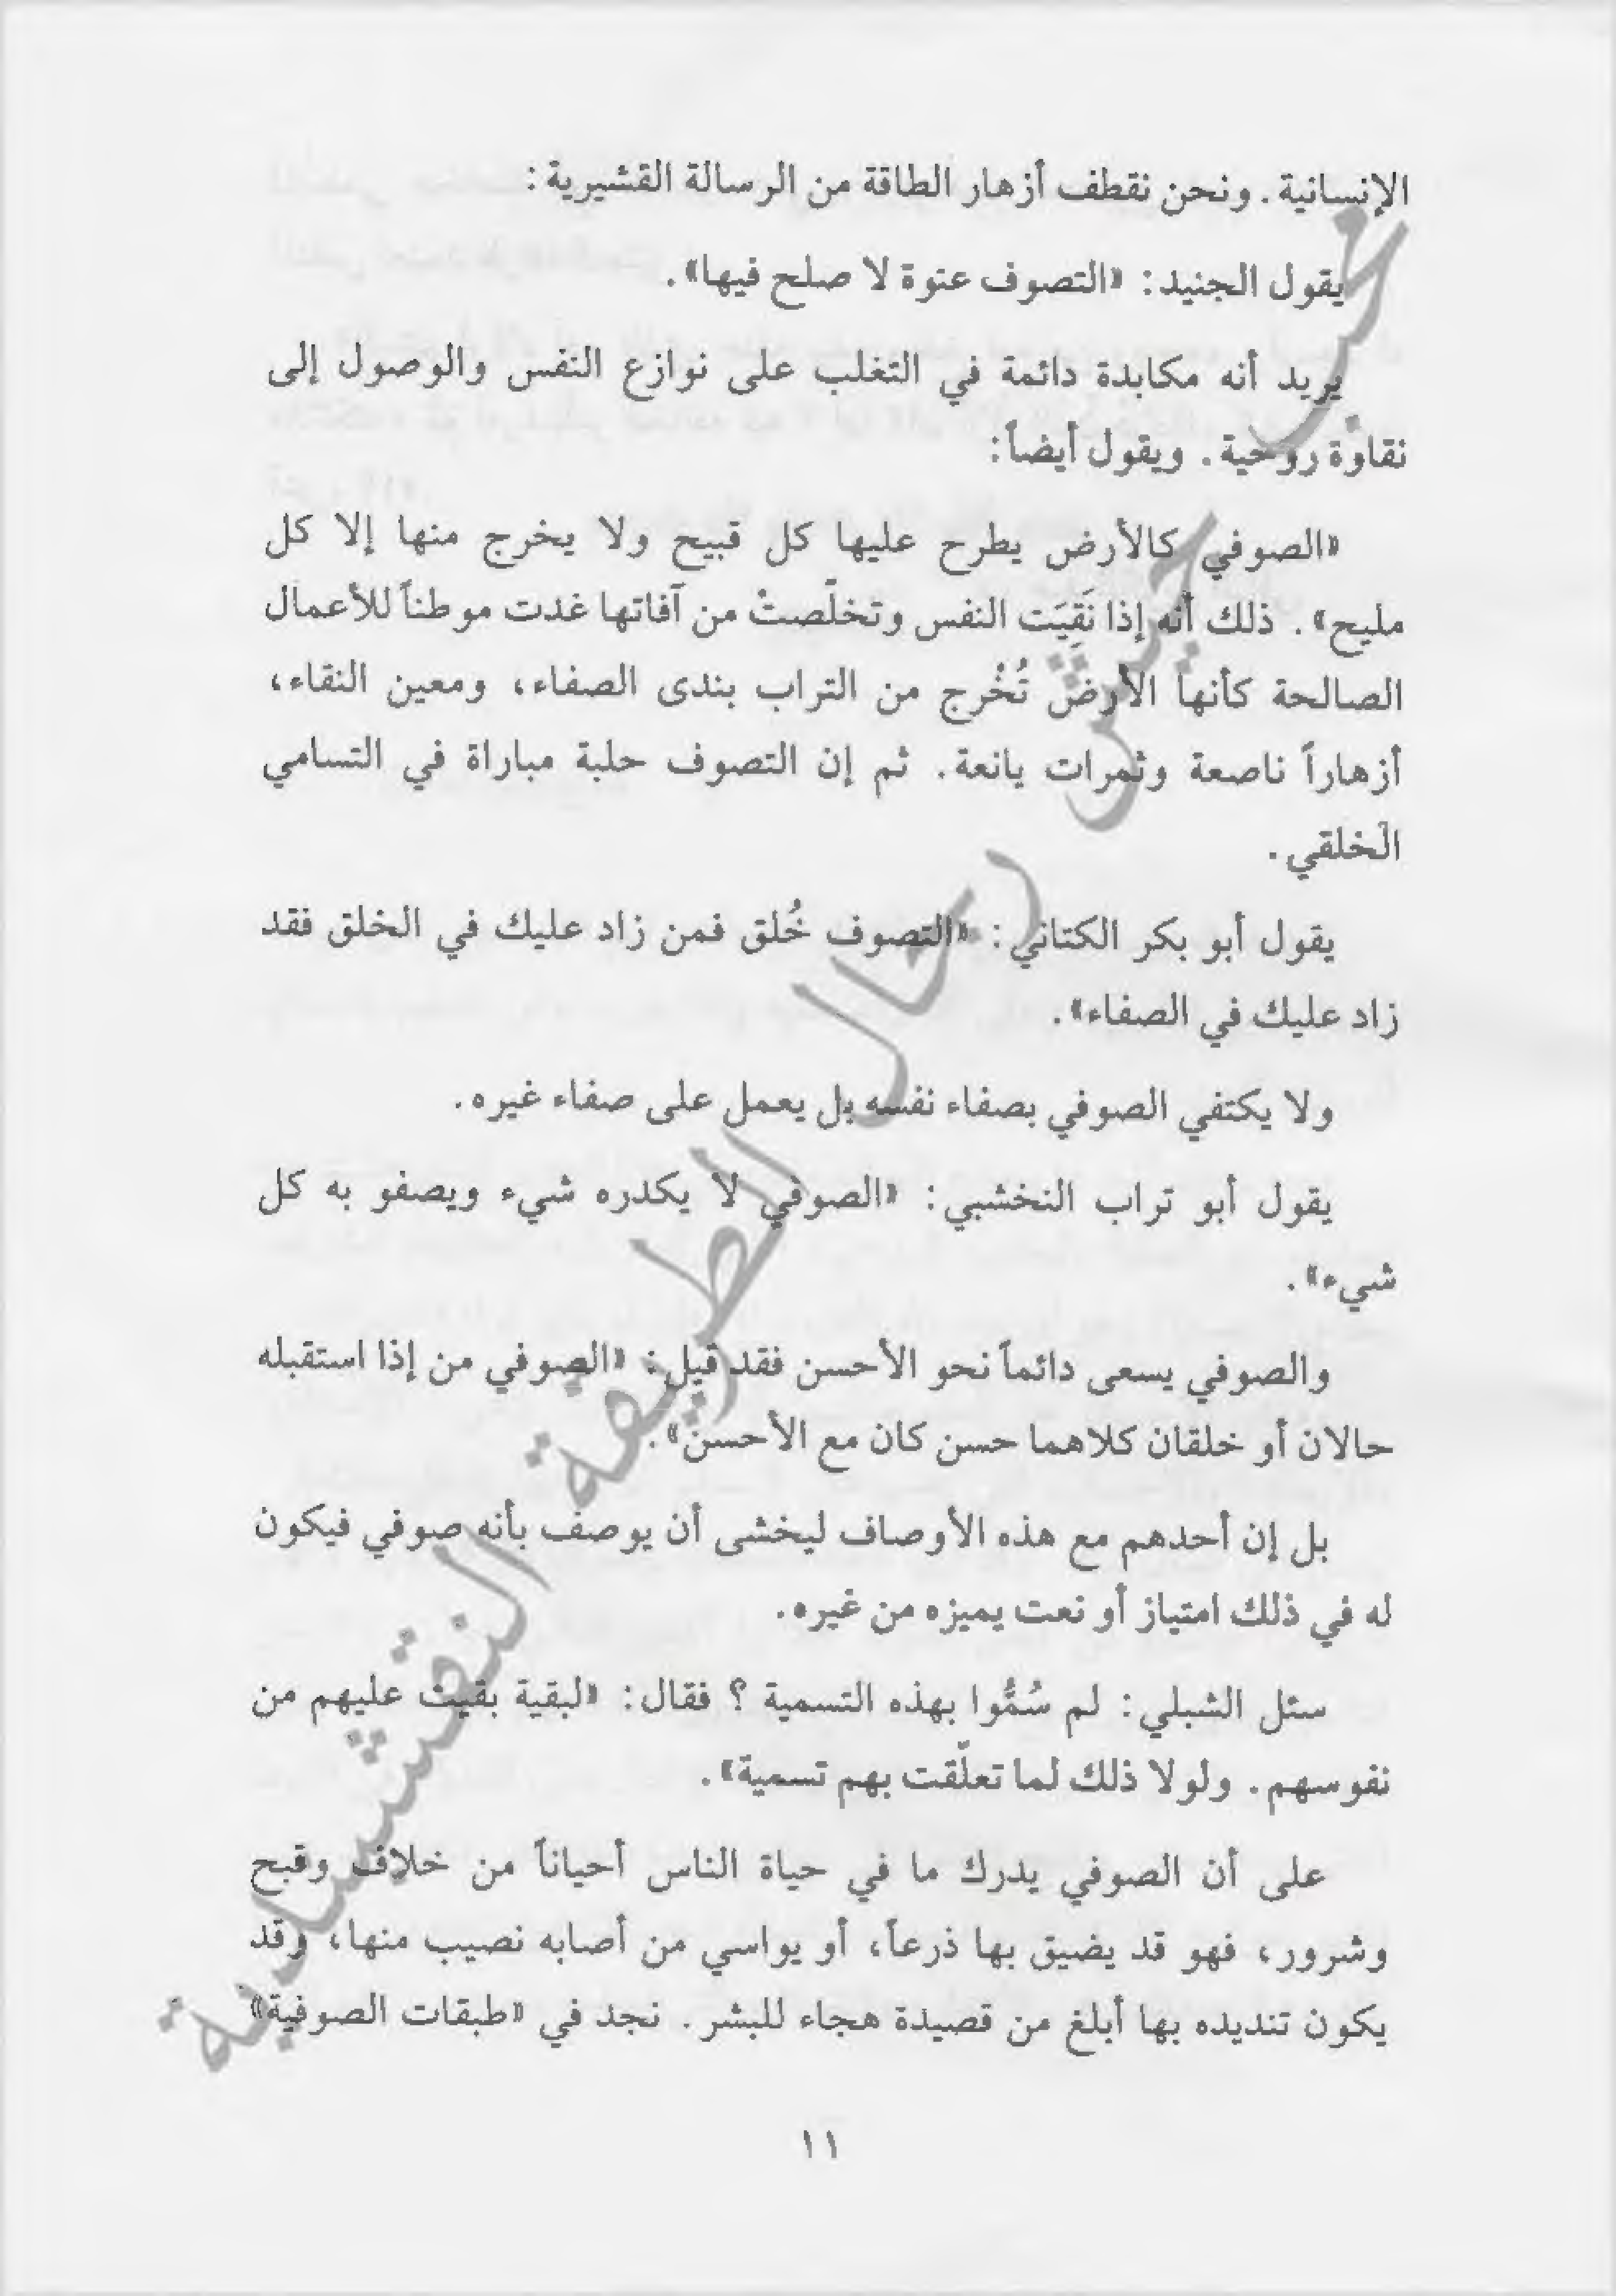 الإنسانية. ونحن نقطف أزهار الطاقة من الرسالة القشيرية:
يقول الجنيد: «التصوف عنوة لا صلح فيها».
يريد أنه مكابدة دائمة في التغلب على نوازع النفس والوصول إلى
نقاوة روحية. ويقول أيضاً:
«الصوفي كالأرض يطرح عليها كل قبيح ولا يخرج منها إلا كل
مليح». ذلك أنه إذا نَقِيَت النفس وتخلّصتْ من آفاتها غدت موطناً للأعمال
الصالحة كأنها الأرض تُخْرج من التراب بندى الصفاء، ومعين النقاء،
أزهاراً ناصعة وثمرات يانعة. ثم إن التصوف حلبة مباراة في التسامي
الخلقي.
يقول أبو بكر الكتاني: «التصوف خُلق فمن زاد عليك في الخلق فقد
زاد عليك في الصفاء».
ولا يكتفي الصوفي بصفاء نفسه بل يعمل على صفاء غيره.
يقول أبو تراب النخشبي: «الصوفي لا يكدره شيء ويصفو به كل
شيء».
والصوفي يسعى دائماً نحو الأحسن فقد قيل: «الصوفي من إذا استقبله
حالان أو خلقان كلاهما حسن كان مع الأحسن».
بل إن أحدهم مع هذه الأوصاف ليخشى أن يوصف بأنه صوفي فيكون
له في ذلك امتياز أو نعت يميزه من غيره.
سئل الشبلي: لم سُمُّوا بهذه التسمية ؟ فقال: «لبقية بقيت عليهم من
نفوسهم. ولولا ذلك لما تعلّقت بهم تسمية».
على أن الصوفي يدرك ما في حياة الناس أحياناً من خلاف وقبح
وشرور، فهو قد يضيق بها ذرعاً، أو يواسي من أصابه نصيب منها، وقد
يكون تنديده بها أبلغ من قصيدة هجاء للبشر. نجد في «طبقات الصوفية»
١١
رجال الطريقة النقشبندية